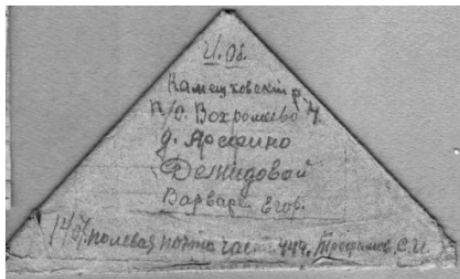 И. Об.
Камешковский р.
п/о. Вахромеево
д. Арефино
Демидовой
Варваре Егор.
полевая почта част. 444. Трофимов. С. И.